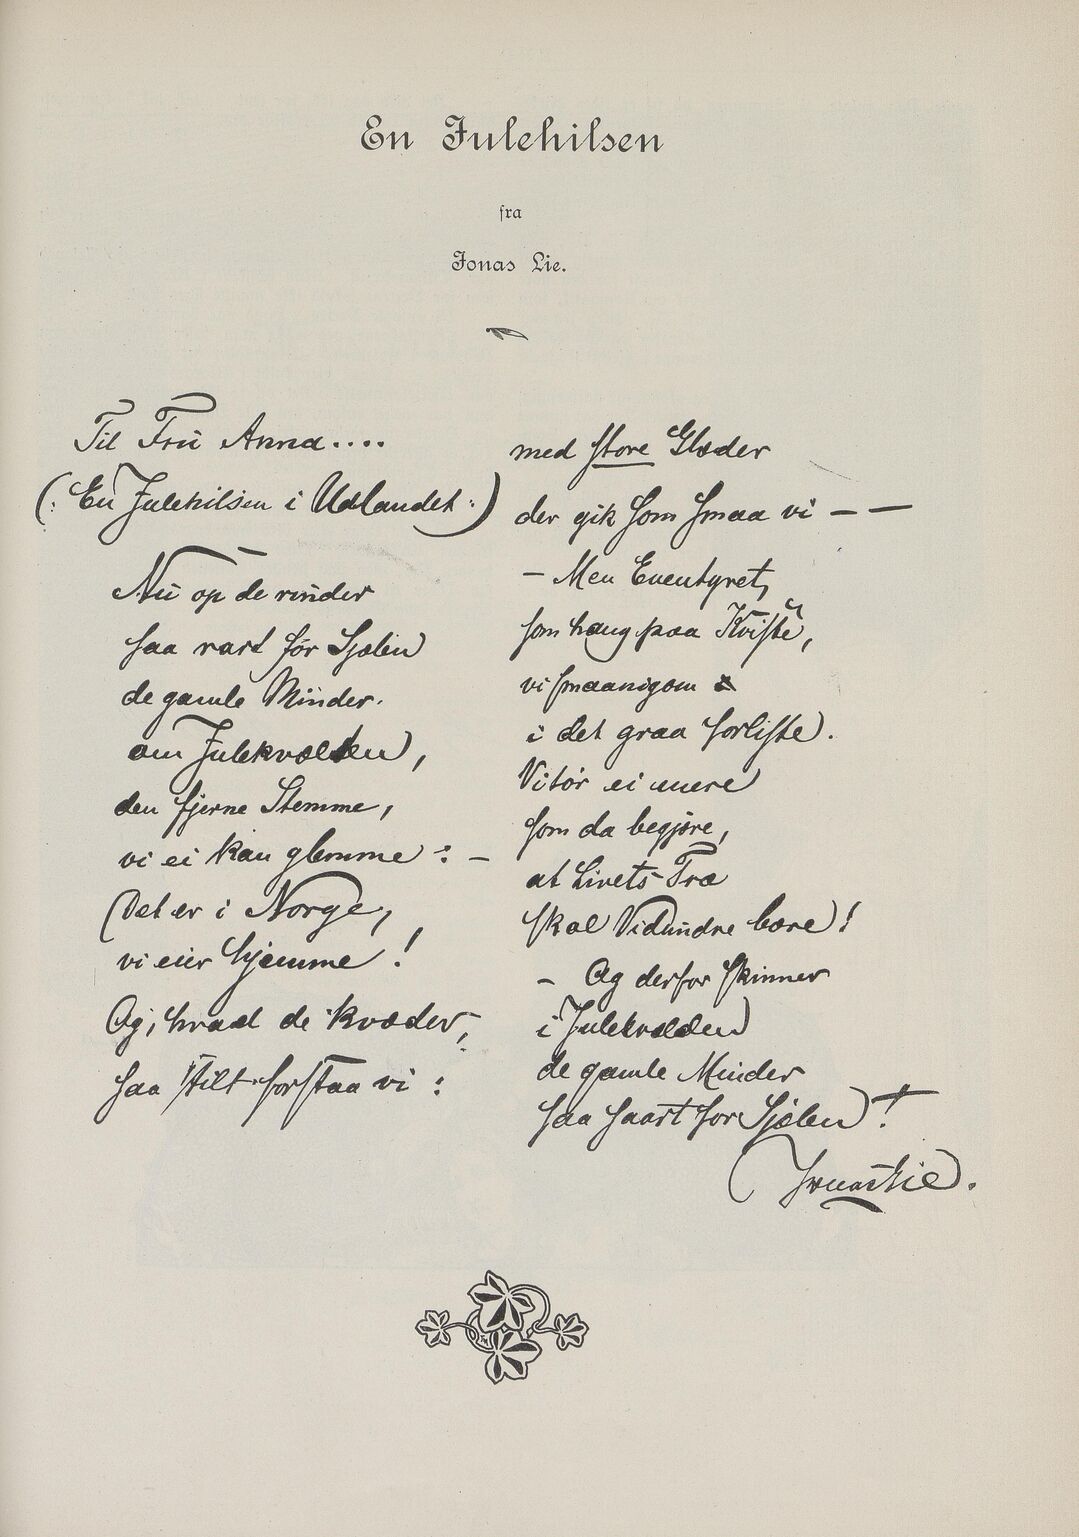 En Julehilsen
fra
Jonas Lie.
Til Fru Anna....
(: En Julehilsen i Udlandet :)
Nu op de rinder
saa vart for Sjælen
de gamle Minder.
om Julekvælden,
den fjerne Stemme,
vi ei kan glemme : –
Det er i Norge,
vi eier hjemme!
Og, hvad de kvæder,
saa stilt forstaa vi :
med store Glæder
der gik som smaa vi – –
– Men Eventyret,
som hang paa Kviste,
vi smaanigom
i det graa forliste.
Vi tør ei mere
som da begjøre,
at Livets Træ
skal Vidundre bære!
– Og derfor skinner
i Julekvælden
de gamle Minder
saa saart for Sjælen!
Jonas Lie.